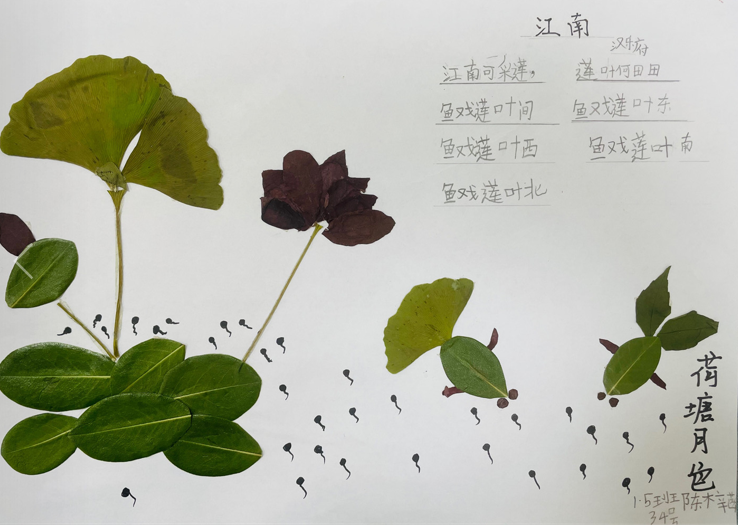 江南
汉乐府
江南可采莲，
莲叶何田田
鱼戏莲叶间
鱼戏莲叶东
鱼戏莲叶西
鱼戏莲叶南
鱼戏莲叶北
荷塘月色
1.5班 陈梓
34号